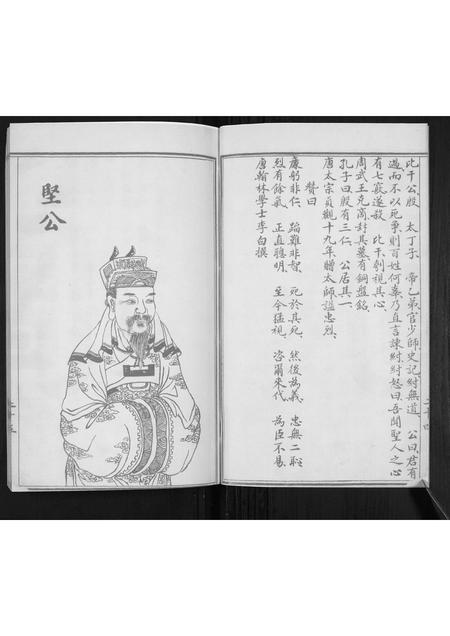 比干公殷 太丁子 帝乙弟官少師史記紂無道 公曰君有
過而不以死爭則百姓何辜乃直言諫紂紂怒曰吾聞聖人之心
有七竅遂殺 比干剖視其心
周武王克商封其墓有銅盤銘
孔子曰殷有三仁 公居其一
唐太宗貞觀十九年贈太師諡忠烈
贊曰
康躬非仁 蹈難非智 死於其死 然後為義 忠無二
烈有餘氣 正直聰明 至今猛視 咨爾來代 為臣不易
唐翰林學士李白撰
二十四
堅公
二十五